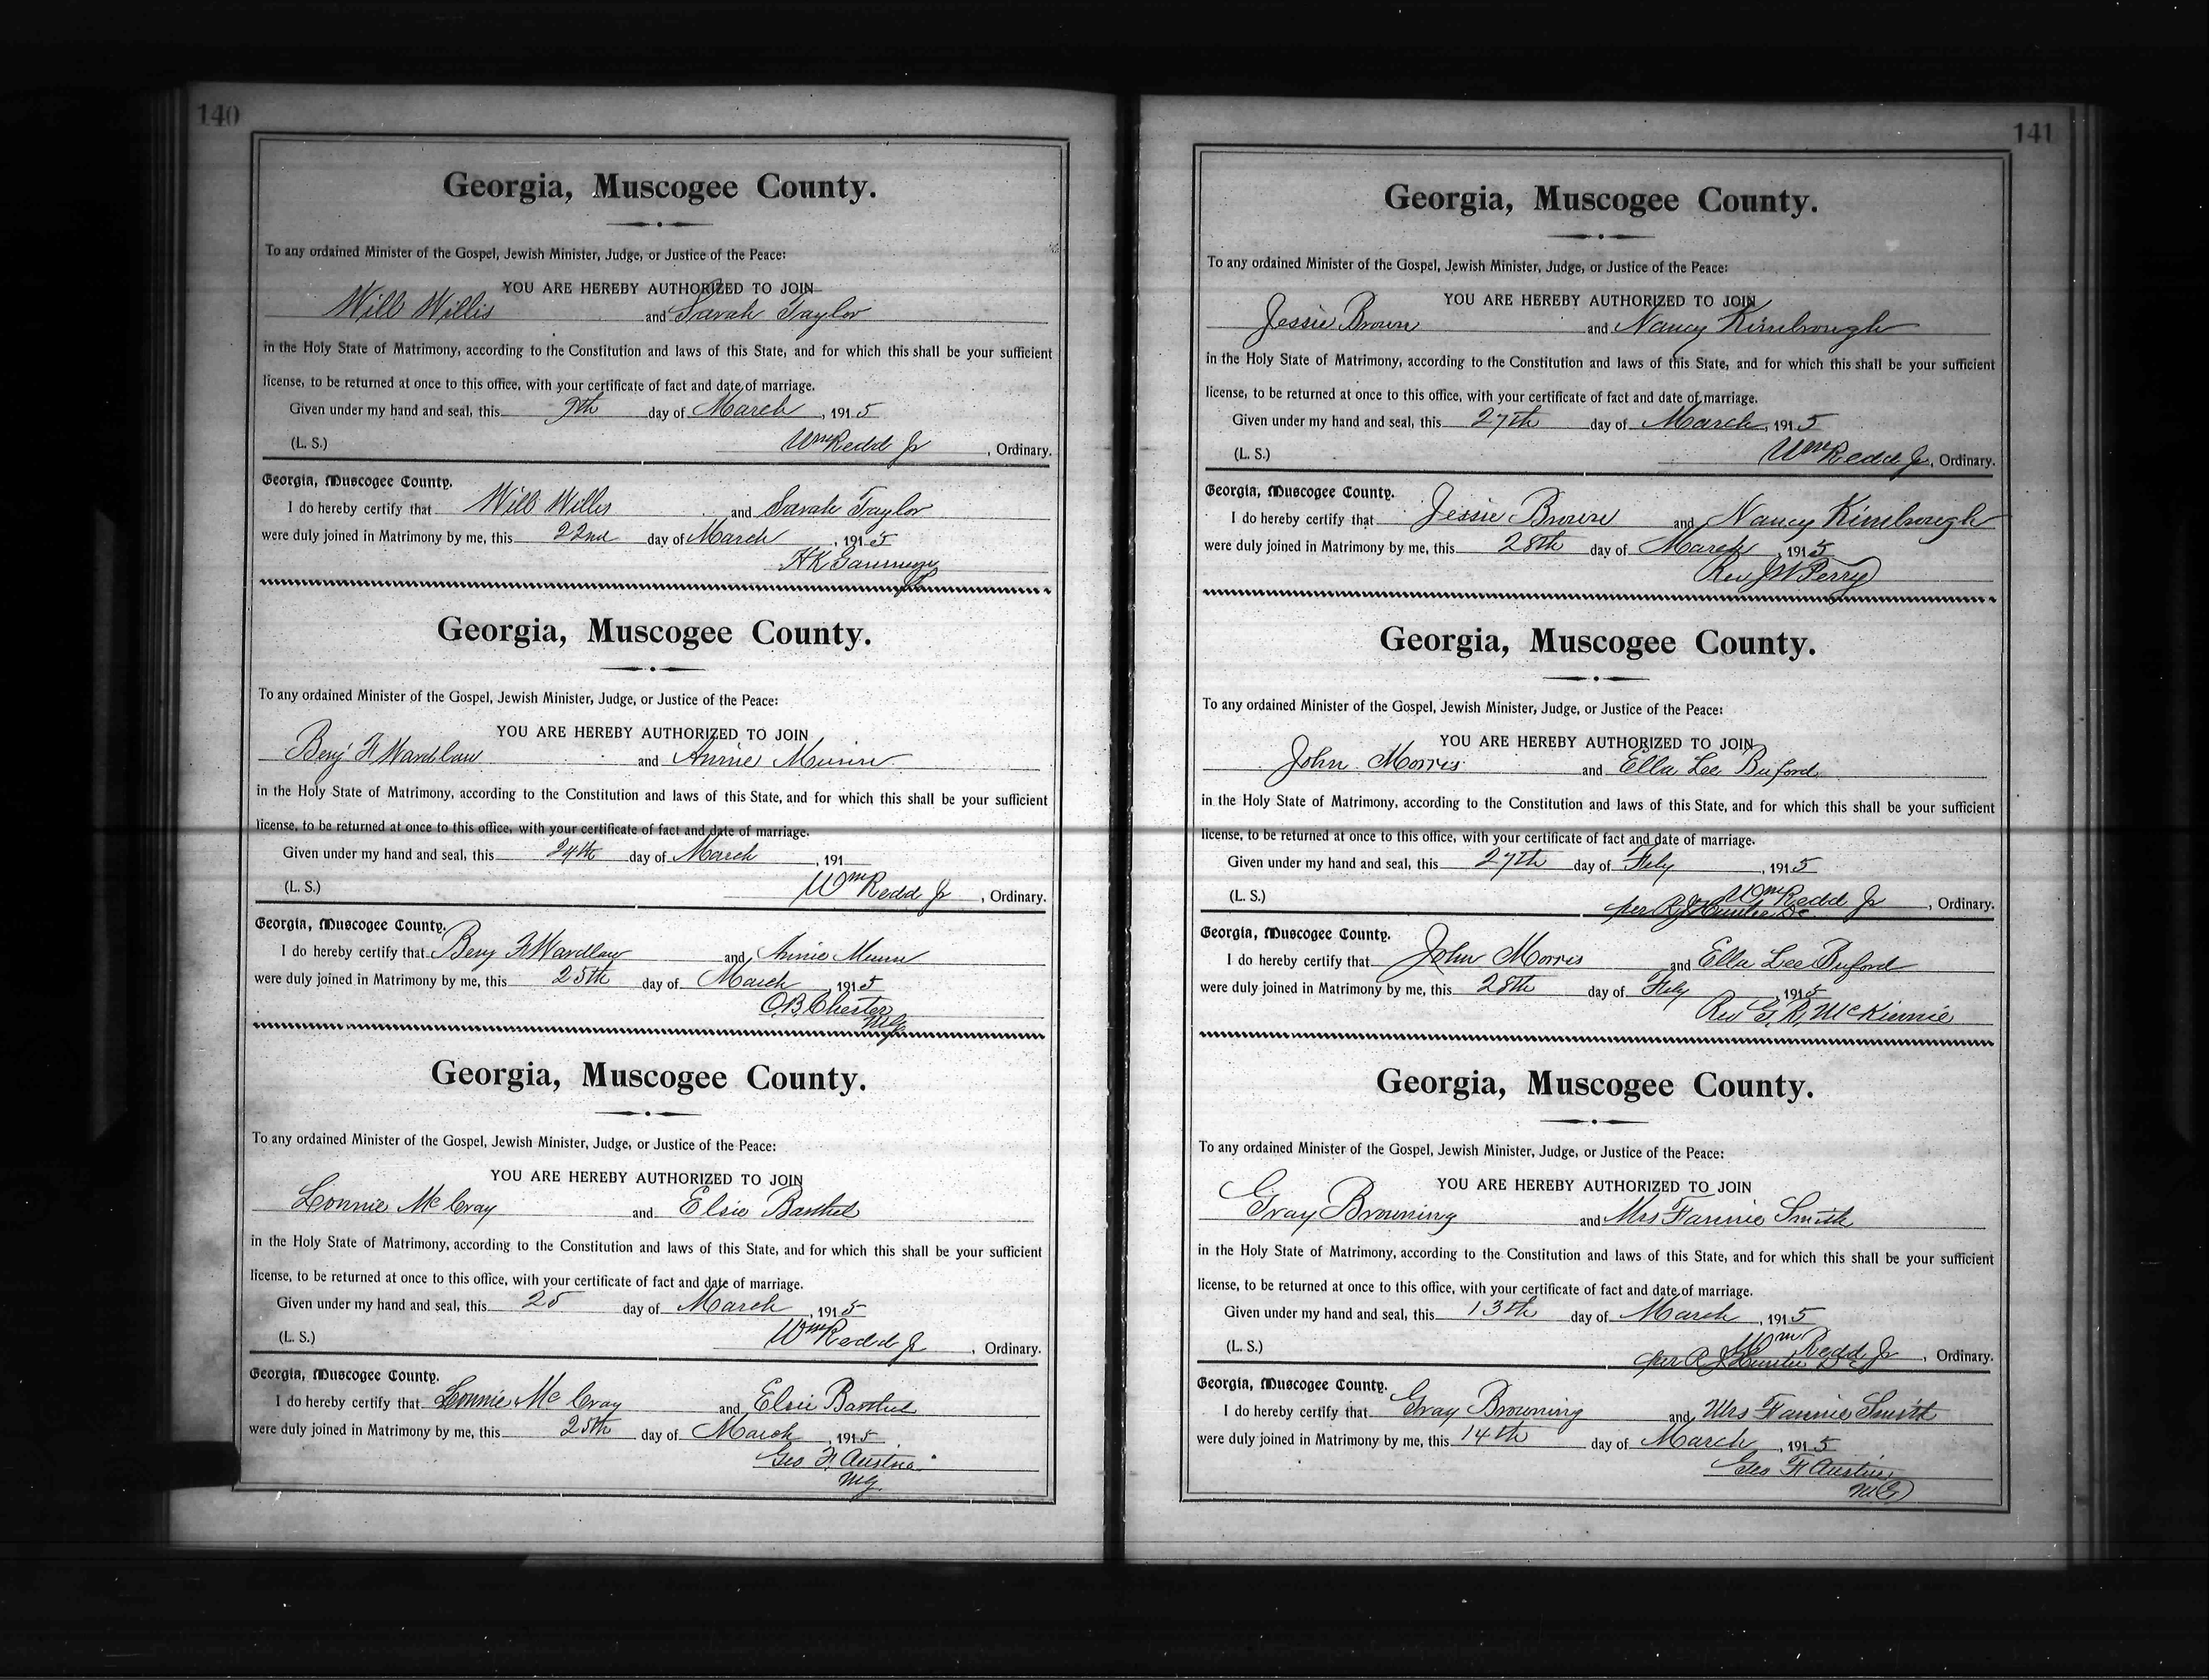 140
Georgia, Muscogee County.
To any ordained Minister of the Gospel, Jewish Minister, Judge, or Justice of the Peace:
YOU ARE HEREBY AUTHORIZED TO JOIN
Will Willis and Sarah Taylor
in the Holy State of Matrimony, according to the Constitution and laws of this State, and for which this shall be your sufficient
license, to be returned at once to this office, with your certificate of fact and date of marriage.
Given under my hand and seal, this 9th day of March, 1915
(L. S.) Wm Redd Jr, Ordinary.
Georgia, Muscogee County.
I do hereby certify that Will Willis and Sarah Taylor
were duly joined in Matrimony by me, this 22nd day of March, 1915
H K
Georgia, Muscogee County.
To any ordained Minister of the Gospel, Jewish Minister, Judge, or Justice of the Peace:
YOU ARE HEREBY AUTHORIZED TO JOIN
Benj F Wardlaw and Annie Munn
in the Holy State of Matrimony, according to the Constitution and laws of this State, and for which this shall be your sufficient
license, to be returned at once to this office, with your certificate of fact and date of marriage.
Given under my hand and seal, this 24th day of March, 191
(L. S.) Wm Redd Jr, Ordinary.
Georgia, Muscogee County.
I do hereby certify that Benj F Wardlaw and Annie Munn
were duly joined in Matrimony by me, this 25th day of March, 1915
O.B. Chester
MG
Georgia, Muscogee County.
To any ordained Minister of the Gospel, Jewish Minister, Judge, or Justice of the Peace:
YOU ARE HEREBY AUTHORIZED TO JOIN
Lonnie McCray and Elsie Barthel
in the Holy State of Matrimony, according to the Constitution and laws of this State, and for which this shall be your sufficient
license, to be returned at once to this office, with your certificate of fact and date of marriage.
Given under my hand and seal, this 25 day of March, 1915
(L. S.) Wm Redd Jr, Ordinary.
Georgia, Muscogee County.
I do hereby certify that Lonnie McCray and Elsie Barthel
were duly joined in Matrimony by me, this 25th day of March, 1915.
Geo F. Austin
MG
141
Georgia, Muscogee County.
To any ordained Minister of the Gospel, Jewish Minister, Judge, or Justice of the Peace:
YOU ARE HEREBY AUTHORIZED TO JOIN
Jessie Brown and Nancy Kimbrough
in the Holy State of Matrimony, according to the Constitution and laws of this State, and for which this shall be your sufficient
license, to be returned at once to this office, with your certificate of fact and date of marriage.
Given under my hand and seal, this 27th day of March, 1915
(L. S.) Wm Redd Jr, Ordinary.
Georgia, Muscogee County.
I do hereby certify that Jessie Brown and Nancy Kimbrough
were duly joined in Matrimony by me, this 28th day of March, 1915
Rev J W Perry
Georgia, Muscogee County.
To any ordained Minister of the Gospel, Jewish Minister, Judge, or Justice of the Peace:
YOU ARE HEREBY AUTHORIZED TO JOIN
John Morris and Ella Lee Buford
in the Holy State of Matrimony, according to the Constitution and laws of this State, and for which this shall be your sufficient
license, to be returned at once to this office, with your certificate of fact and date of marriage.
Given under my hand and seal, this 27th day of Feby, 1915
(L. S.) Wm Redd Jr, Ordinary.
per R J Hunter DC
Georgia, Muscogee County.
I do hereby certify that John Morris and Ella Lee Buford
were duly joined in Matrimony by me, this 28th day of Feby, 1915
Rev G. R. McKinnie
Georgia, Muscogee County.
To any ordained Minister of the Gospel, Jewish Minister, Judge, or Justice of the Peace:
YOU ARE HEREBY AUTHORIZED TO JOIN
Gray Browning and Mrs Fannie Smith
in the Holy State of Matrimony, according to the Constitution and laws of this State, and for which this shall be your sufficient
license, to be returned at once to this office, with your certificate of fact and date of marriage.
Given under my hand and seal, this 13th day of March, 1915
(L. S.) Wm Redd Jr, Ordinary.
per R J Hunter DC
Georgia, Muscogee County.
I do hereby certify that Gray Browning and Mrs Fannie Smith
were duly joined in Matrimony by me, this 14th day of March, 1915
Geo F Austin
MG